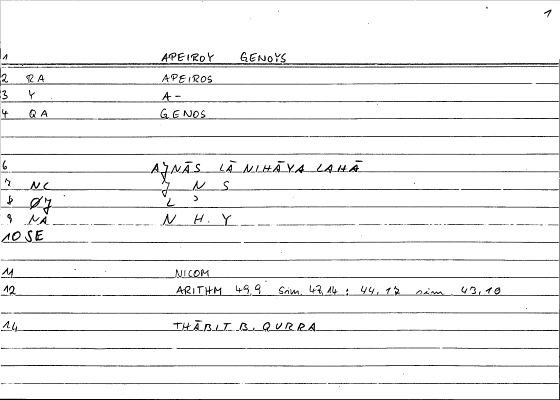 1
1 APEIROY GENOYS
2 RA APEIROS
3 Y A-
4 QA GENOS
6 AJNĀS LĀ NIHĀYA LAHĀ
7 NC J N S
8 ØJ L ʾ
9 NA N H Y
10 SE
11 NICOM
12 ARITHM 49,9 sim. 47,14 ; 44,17 sim 43,18
14 THĀBIT B. QURRA